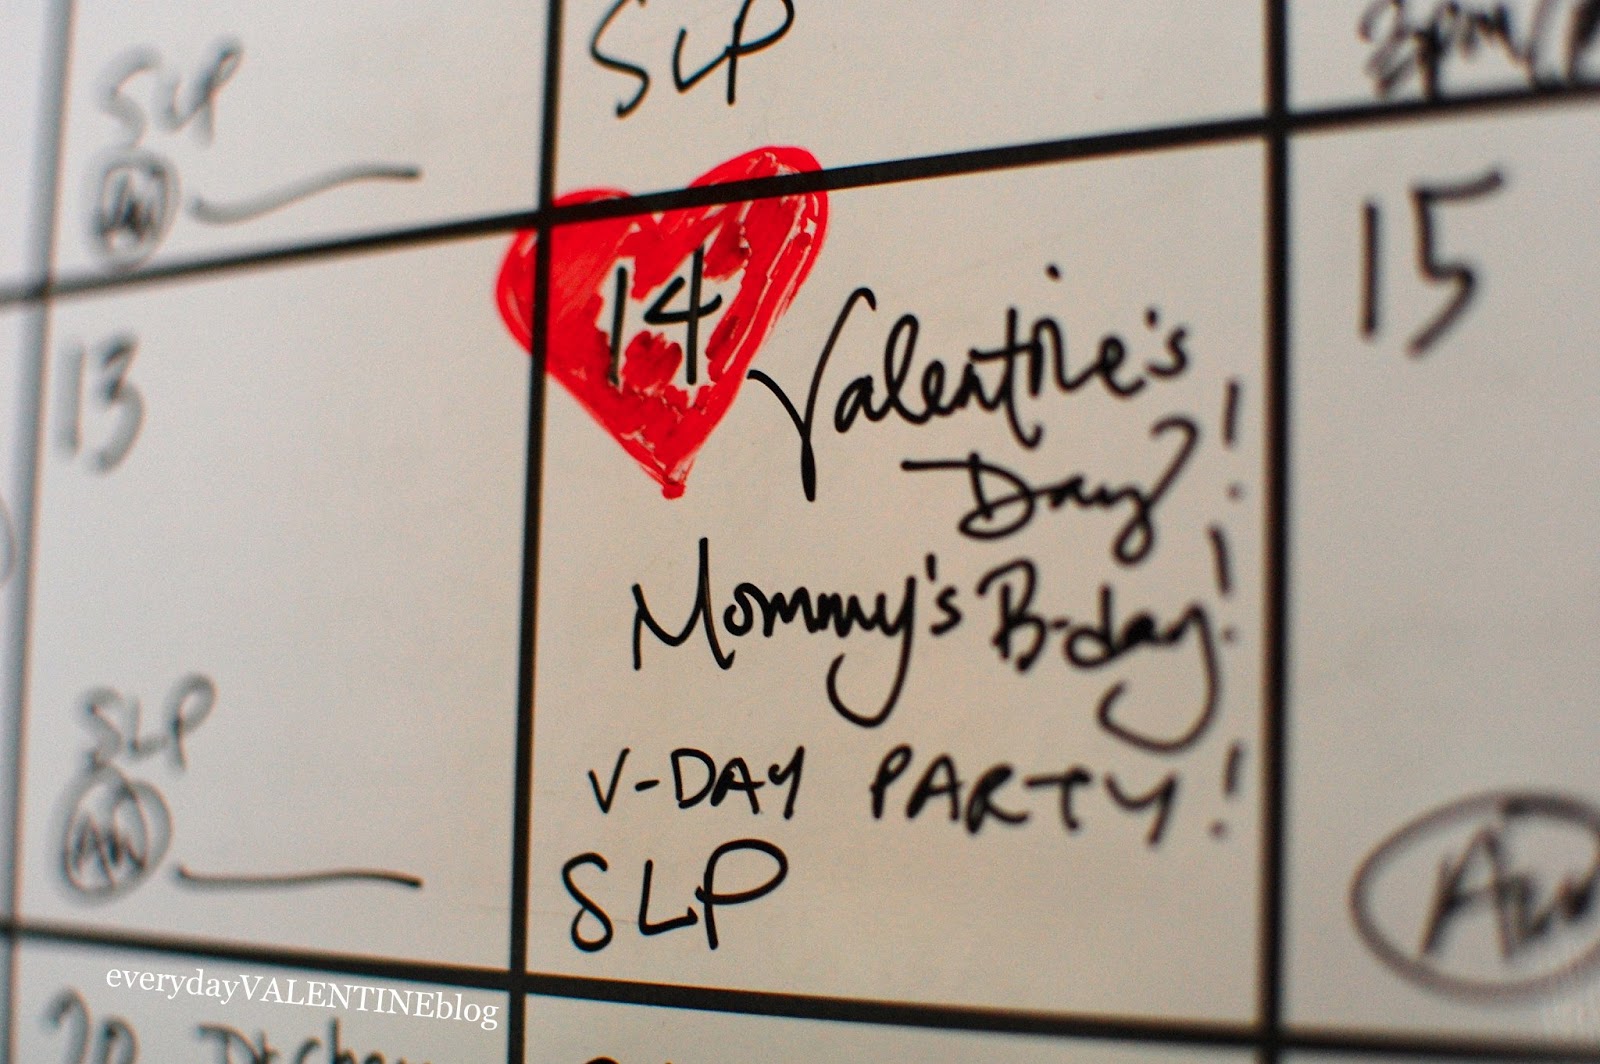 SLP
SLP
13
14
Valentine's
Day!
Mommy's B-day!
V-DAY PARTY!
SLP
15
SLP
everydayVALENTINEblog
20